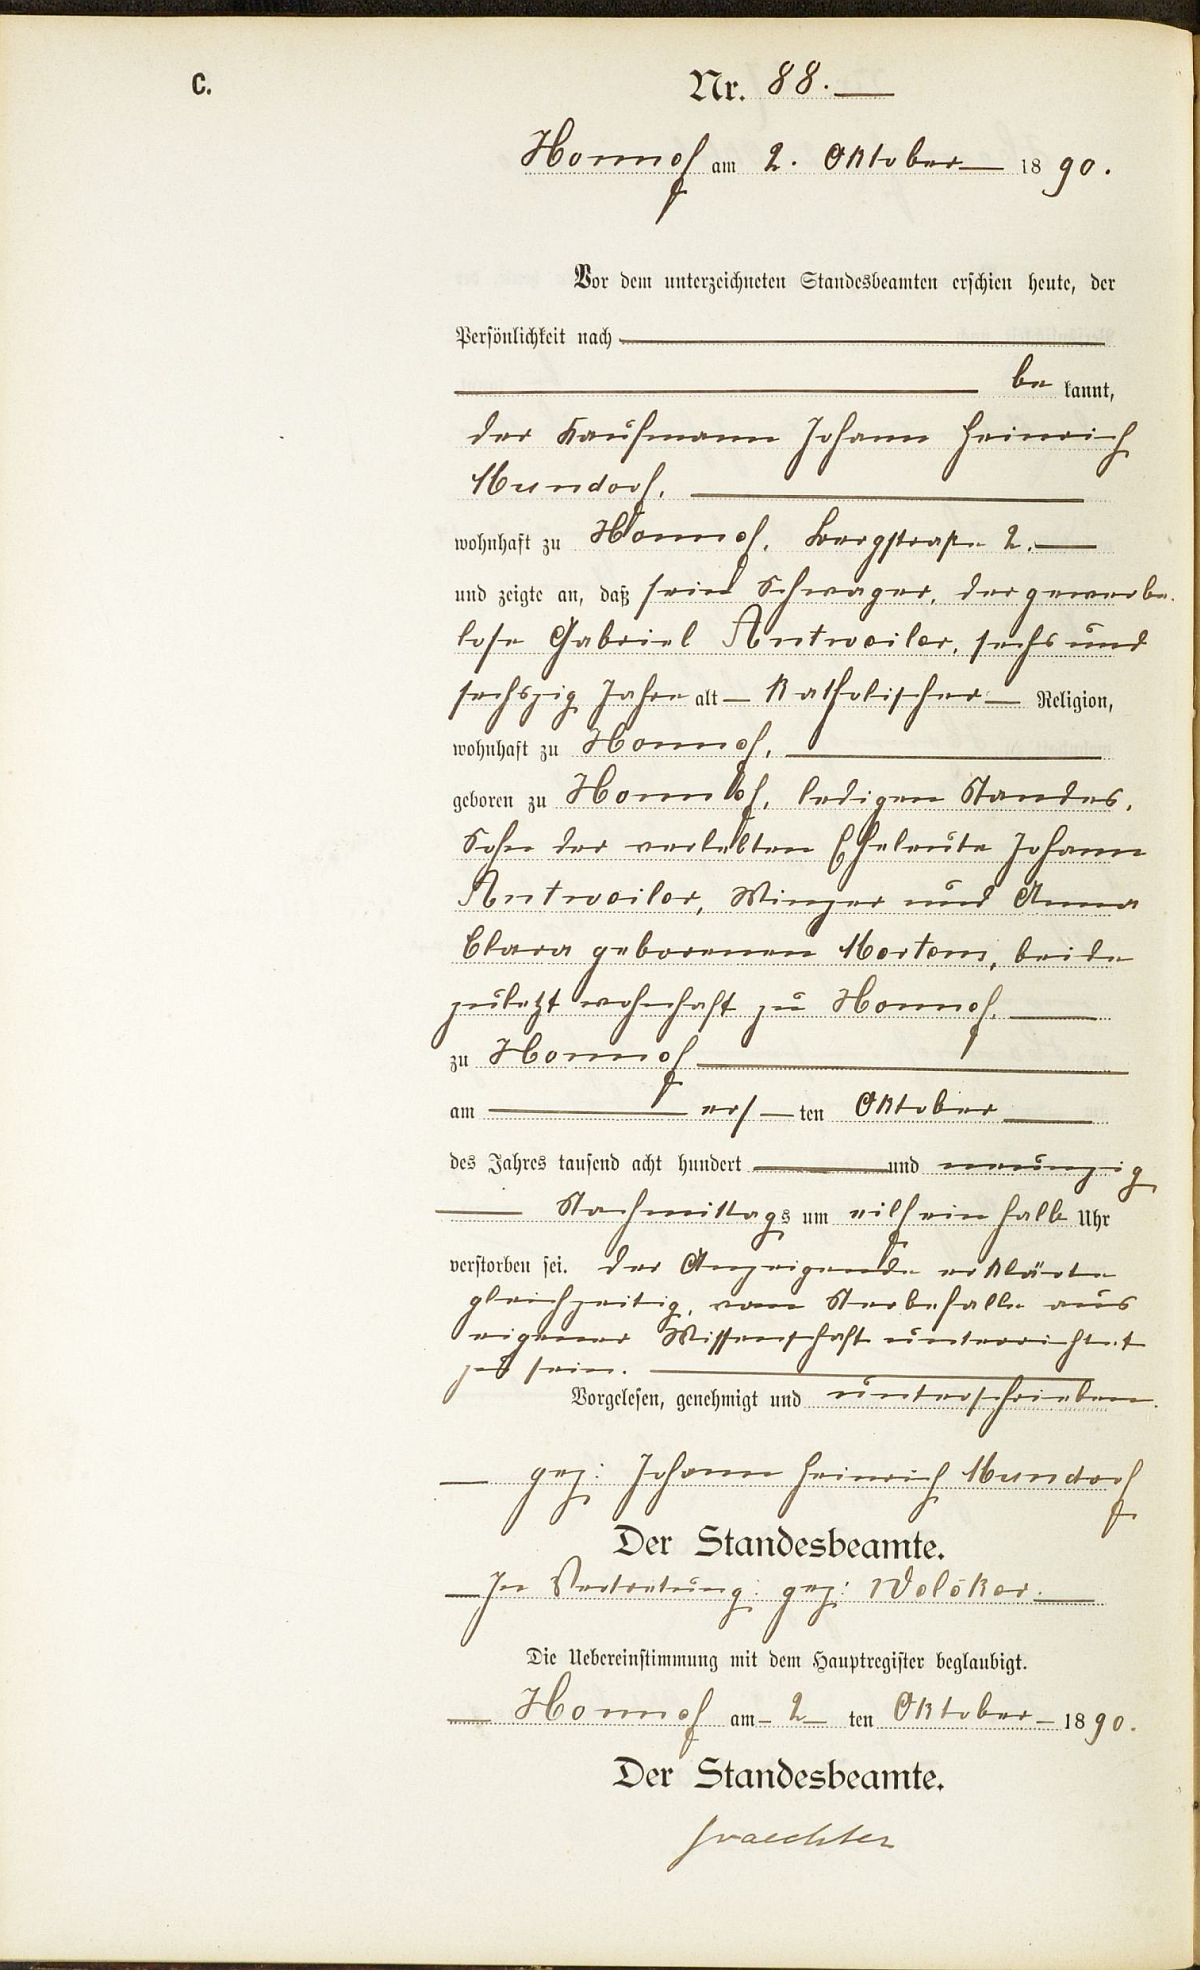 C.
Nr. 88.
Honnef am 2. Oktober 1890.
Vor dem unterzeichneten Standesbeamten erschien heute, der
Persönlichkeit nach
be kannt,
der Kaufmann Johann Heinrich
Mundorf,
wohnhaft zu Honnef, Bergstraße 2.
und zeigte an, daß sein Schwager, der gewerbe-
lose Gabriel Antweiler, sechs und
sechszig Jahre alt Katholischer Religion,
wohnhaft zu Honnef,
geboren zu Honnef, ledigen Standes,
Sohn der verlebten Eheleute Johann
Antweiler, Winzer und Anna
Clara geborenen Mertens, beide
zuletzt wohnhaft zu Honnef,
zu Honnef
am ers ten Oktober
des Jahres tausend acht hundert und neunzig
Nachmittags um eilf ein halb Uhr
verstorben sei. Der Anzeigende erklärte
gleichzeitig, vom Sterbefalle aus
eigener Wissenschaft unterrichtet
zu sein.
Vorgelesen, genehmigt und unterschrieben.
gez: Johann Heinrich Mundorf
Der Standesbeamte.
In Vertretung: gez:
Die Uebereinstimmung mit dem Hauptregister beglaubigt.
Honnef am 2 ten Oktober 1890.
Der Standesbeamte.